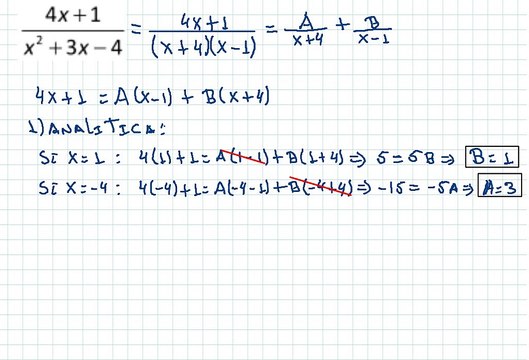 (4x + 1)/(x² + 3x − 4) = (4x+1)/((x+4)(x-1)) = A/(x+4) + B/(x-1)
4x+1 = A(x-1) + B(x+4)
1) ANALITICA:
SI X=1 : 4(1)+1=A(1-1)+B(1+4) ⇒ 5=5B ⇒ B=1
SI X=-4 : 4(-4)+1=A(-4-1)+B(-4+4) ⇒ -15=-5A ⇒ A=3